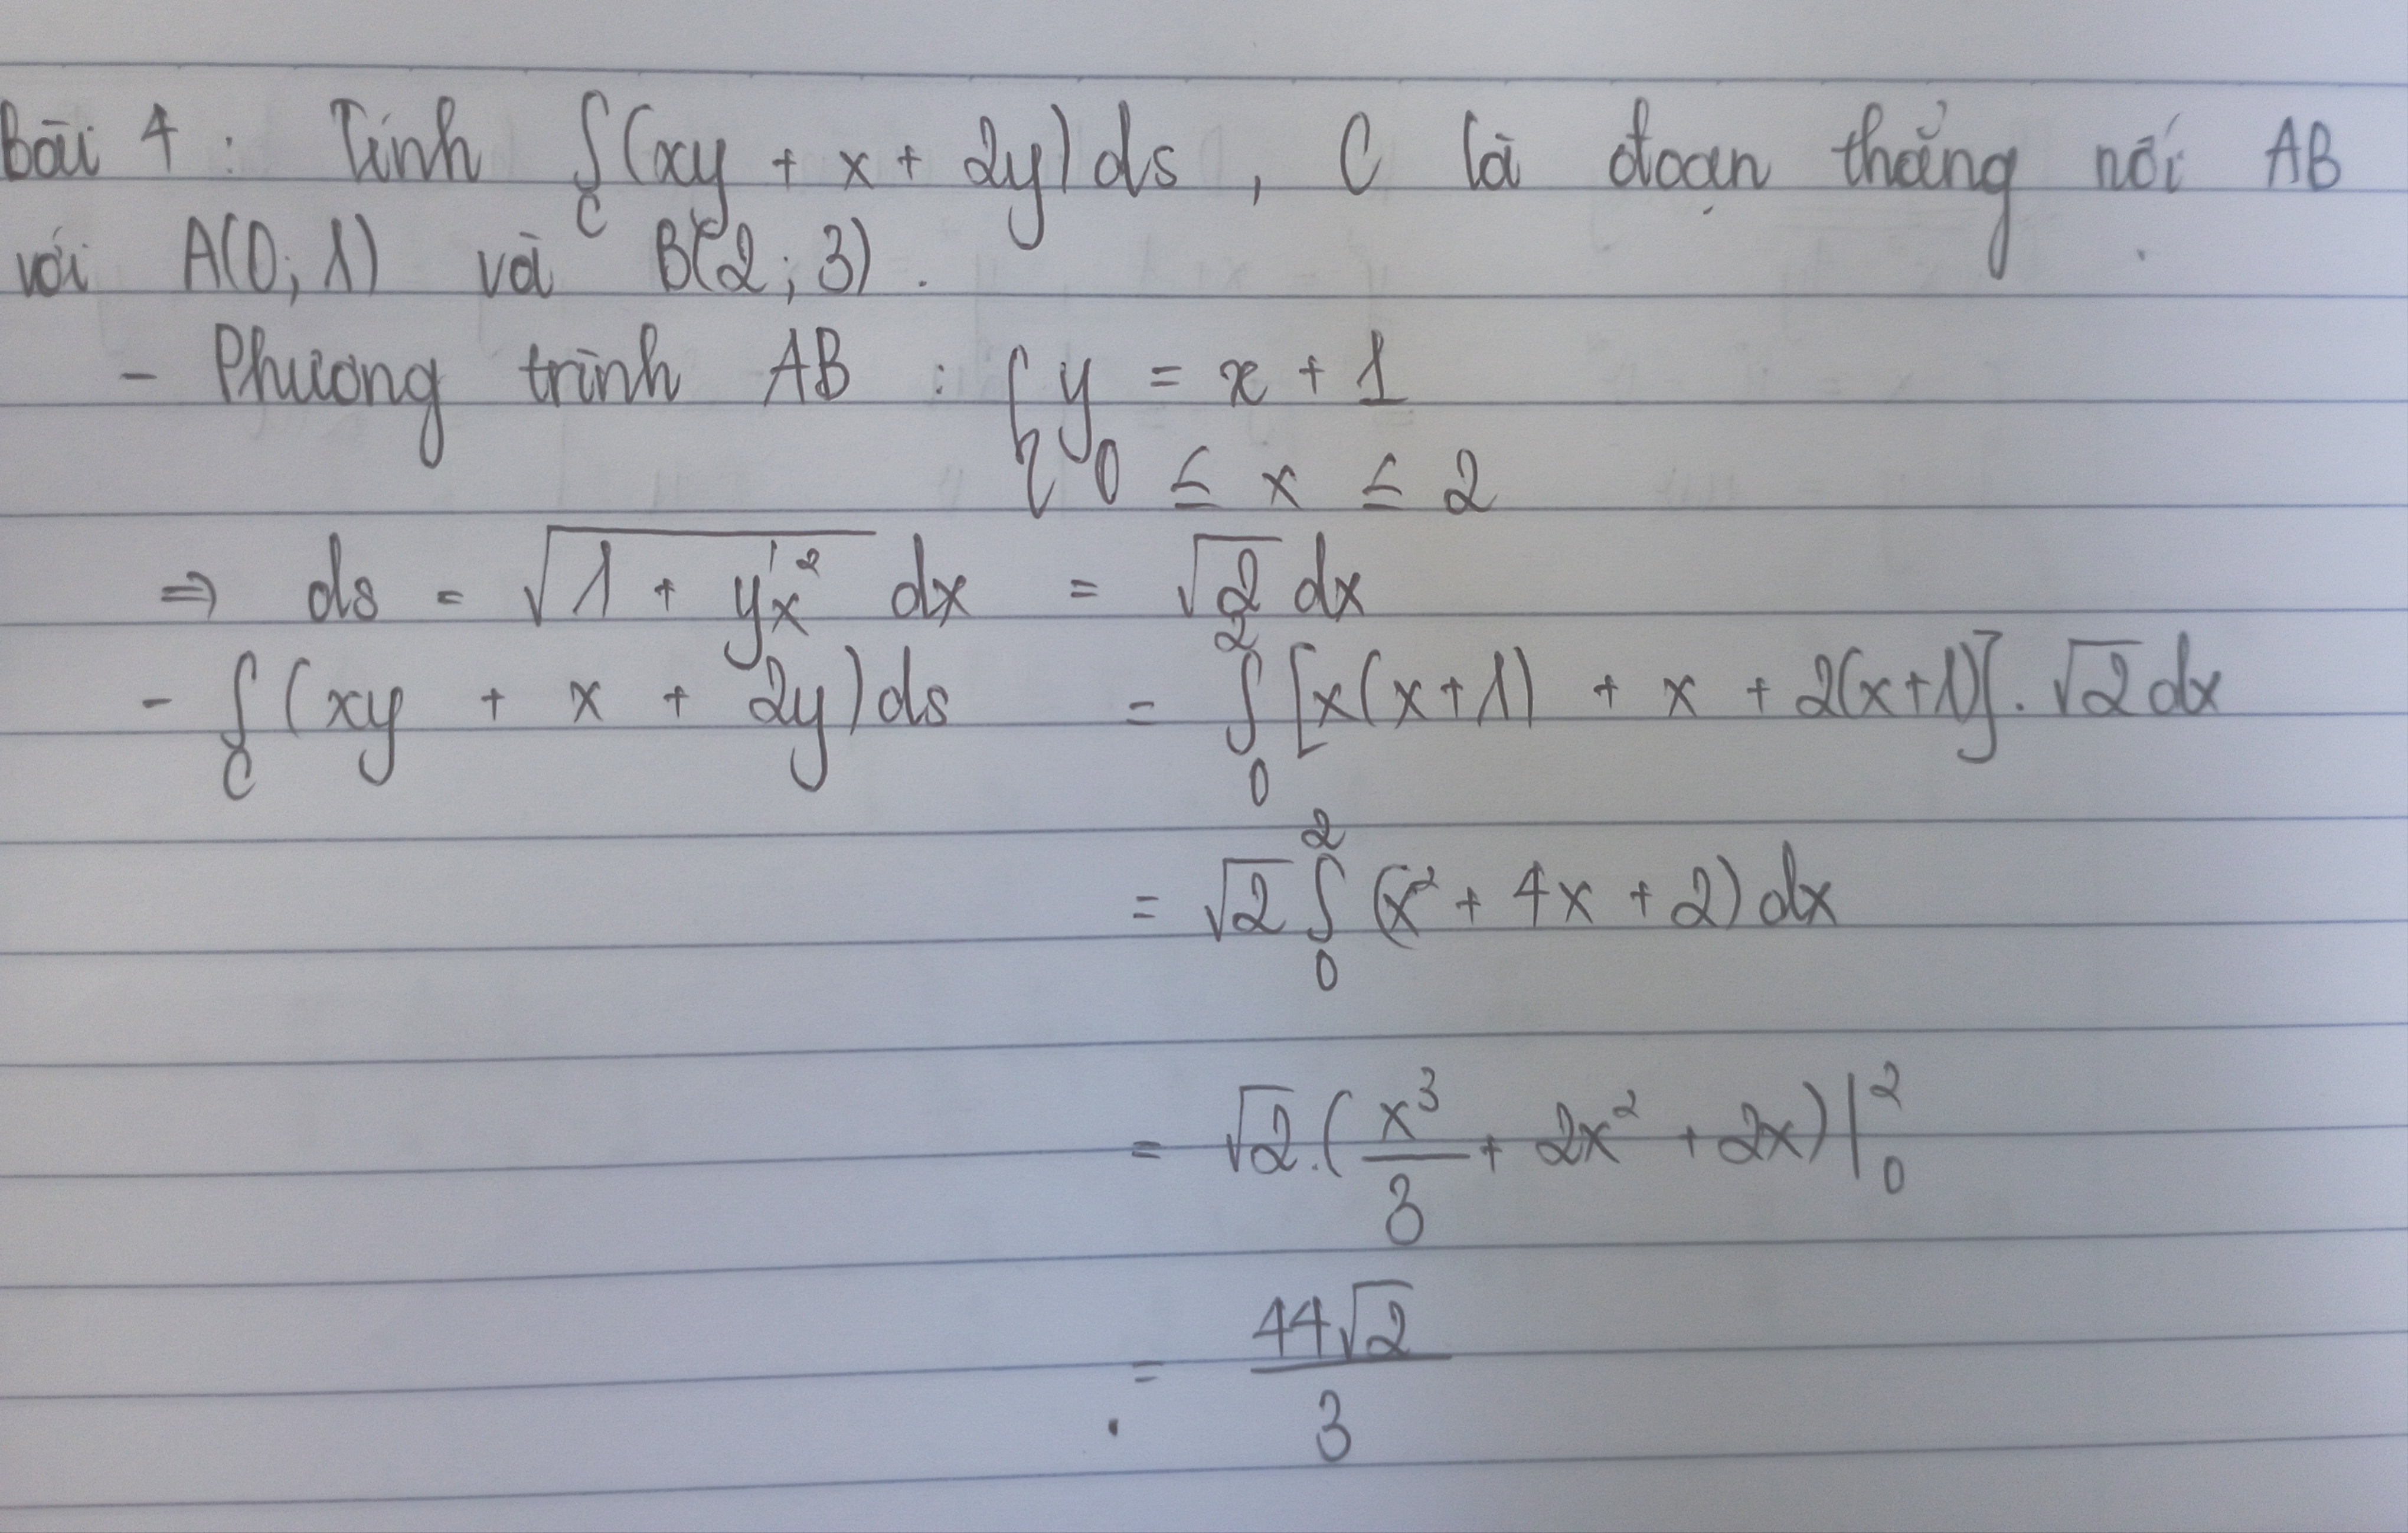 Bài 4 : Tính ∫_C (xy + x + 2y) ds , C là đoạn thẳng nối AB
với A(0; 1) và B(2; 3) .
- Phương trình AB : { y = x + 1
0 ≤ x ≤ 2
⇒ ds = √(1 + y'ₓ²) dx = √2 dx
- ∫_C (xy + x + 2y) ds = ∫₀² [x(x+1) + x + 2(x+1)] . √2 dx
= √2 ∫₀² (x² + 4x + 2) dx
= √2 . (x³/3 + 2x² + 2x) |₀²
= 44√2/3